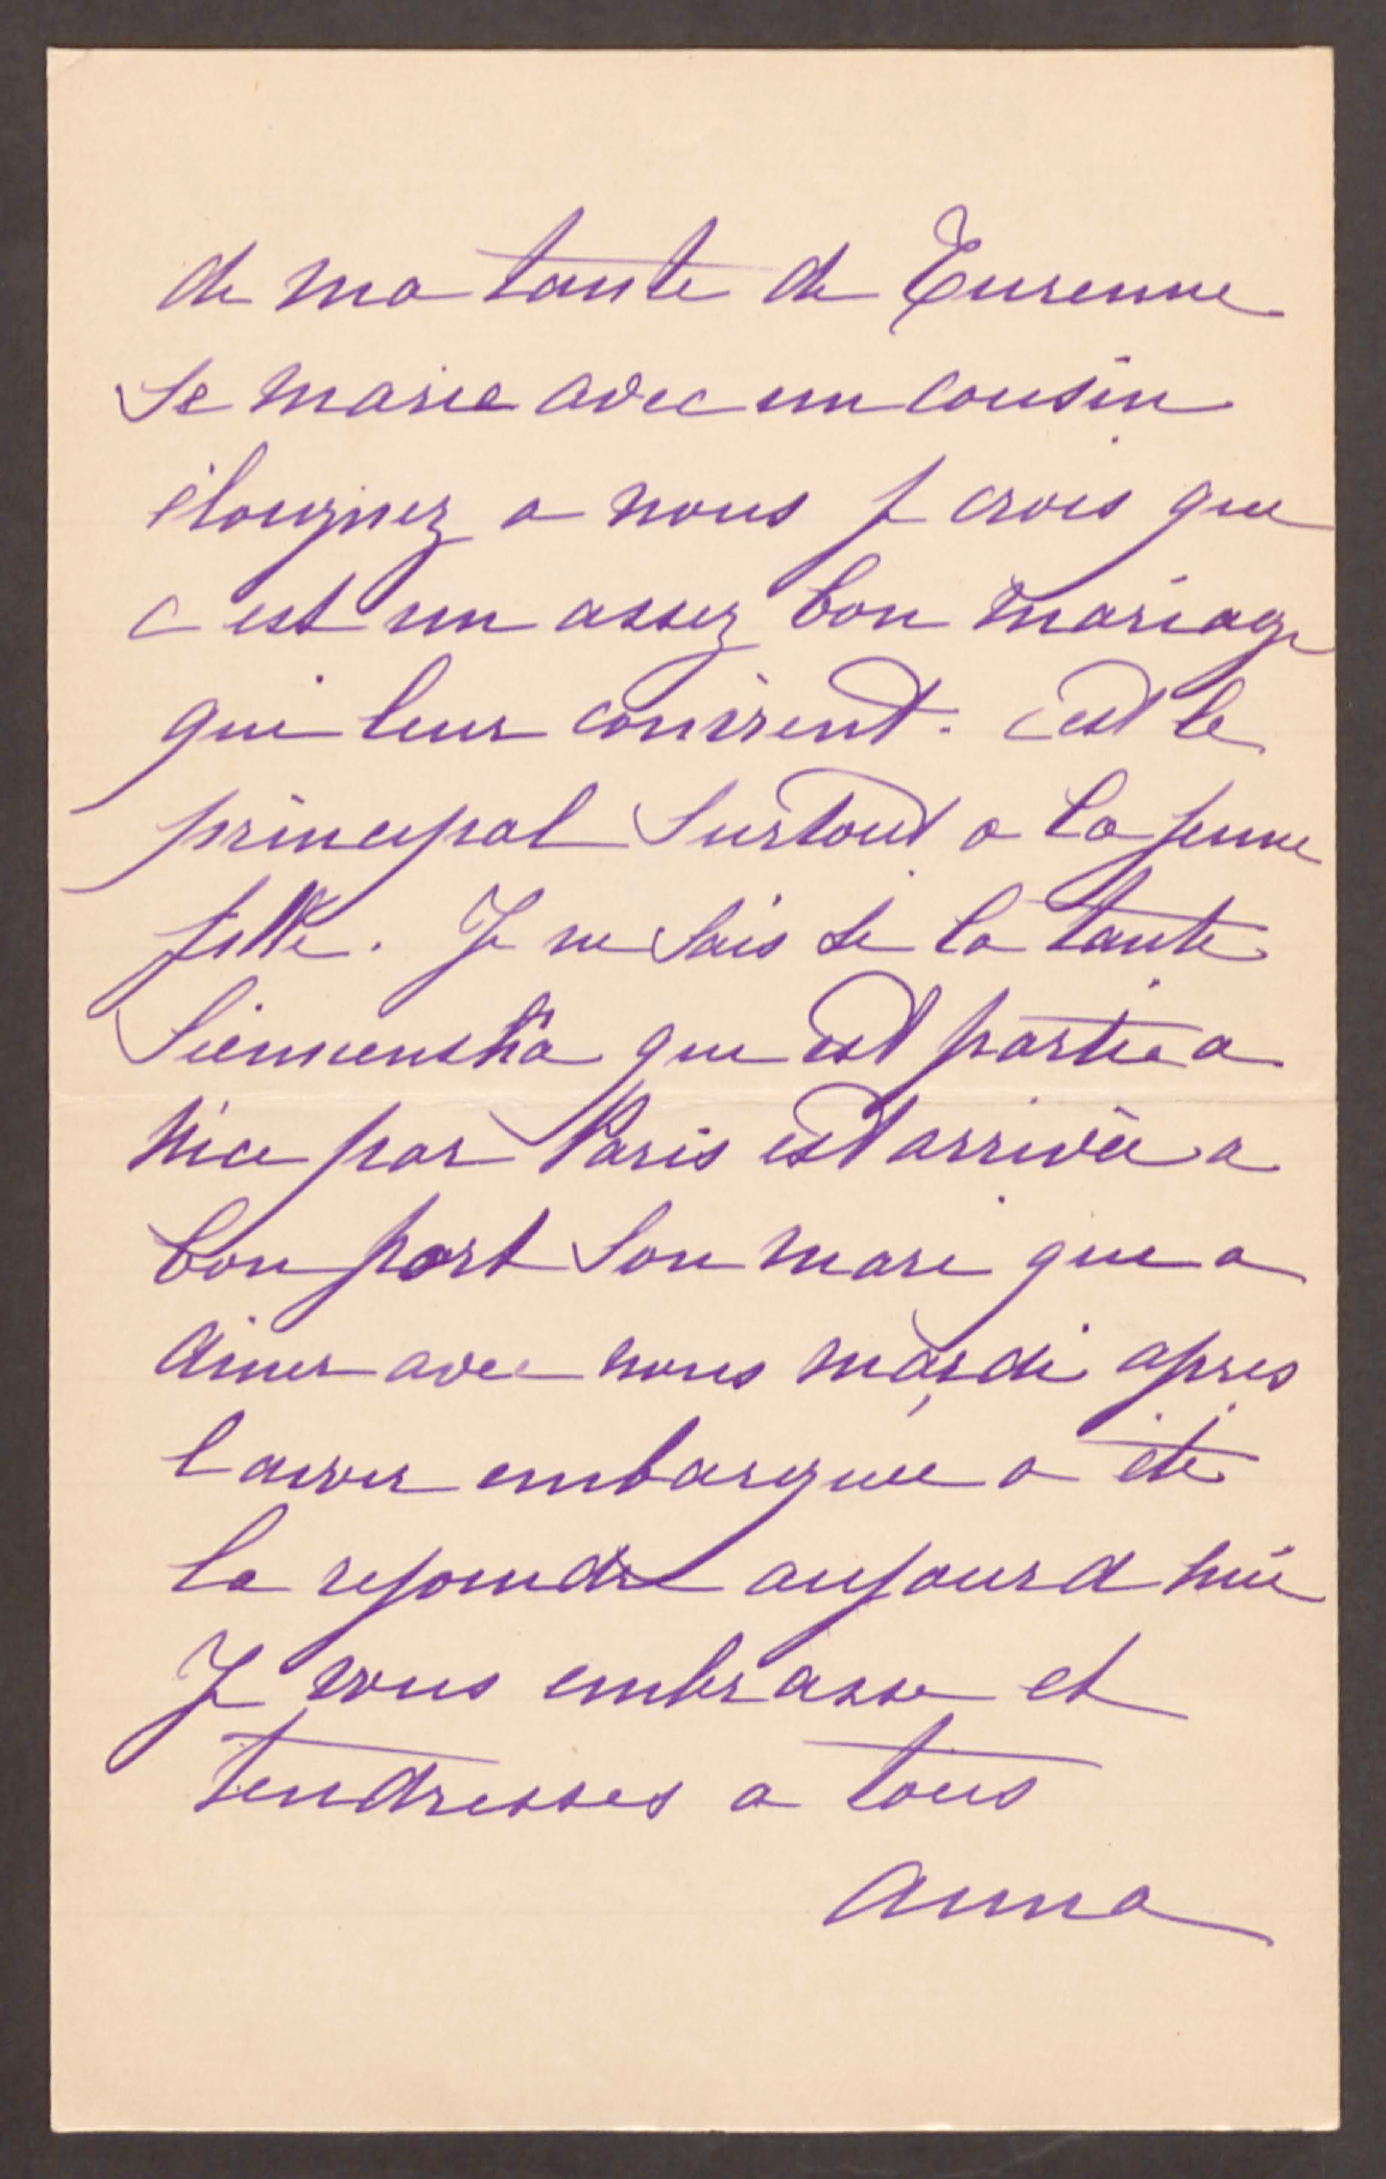 de ma tante de Turenne
se marie avec un cousin
élougnez a nous je crois que
c est un assez bon mariage
qui leur convient. c est le
principal surtout a la jeune
fille. Je ne sais si la tante
que est partie a
Nice par Paris est arrivée a
bon port son mari que a
diner avec nous mardi apres
l avoir embarquee a été
la rejoindre aujourd hui
Je vous embrasse et
tendresses a tous
Anna